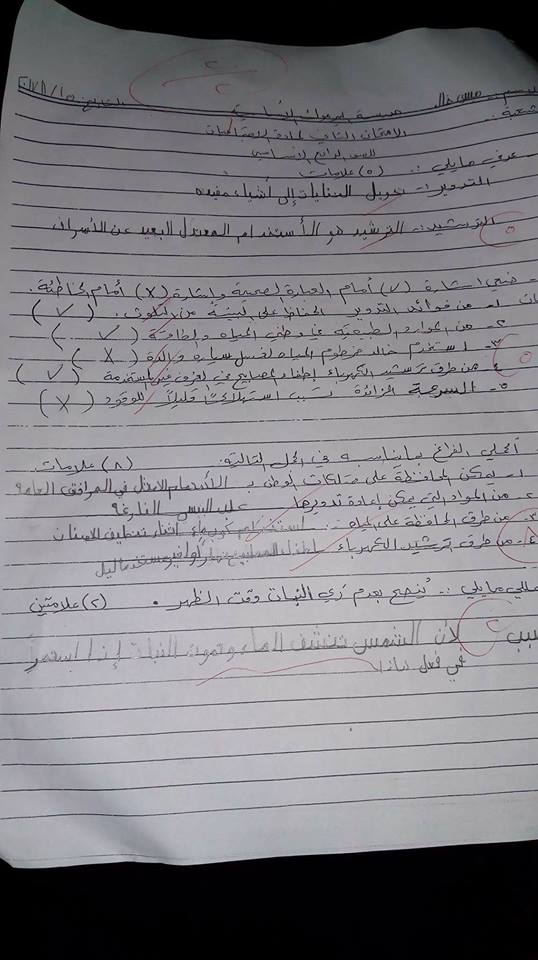 ٢٠
٢٠
مدرسة اليرموك الأساسية
الامتحان الثاني لمادة الاجتماعيات
للصف الرابع الأساسي
عرفي مايلي :. (٥) علامات
التدوير :. تحويل النفايات إلى أشياء مفيده
الترشيد :. الترشيد هو الأستخدام المعتدل البعيد عن الأسراف
٥
ضعي اشارة (√) أمام العبارة الصحيحة واشارة (X) أمام الخاطئة.
١- من فوائد التدوير الحفاظ على البيئة من التلوث. (√)
٢- من الموارد الطبيعية في وطني المياه والطاقة (√)
٣- استخدم خالد خرطوم المياه لغسل سيارة والده (X)
٤- من طرق ترشيد الكهرباء إطفاء المصابيح في الغرف غير المستخدمة (√)
٥- السرعة الزائدة تسبب استهلاكاً قليلاً للوقود (X)
٥
أكملي الفراغ بما يناسبه في الجمل التالية: (٨) علامات
١- يمكن المحافظة على ممتلكات الوطن بـ الأستخدام الأمثل في المرافق العامة
٢- من المواد التي يمكن إعادة تدويرها علب الببسي الفارغة
٣- من طرق المحافظة على المياه :. استخدام كوب ماء اثناء تنظيف الاسنان
٤- من طرق ترشيد الكهرباء
٨
عللي مايلي :. يُنصح بعدم ري النبات وقت الظهر. (٢) علامتين
السبب لأن الشمس تنشف الماء وتموت النبتة إذا استمر
في فعل ذلك
٢